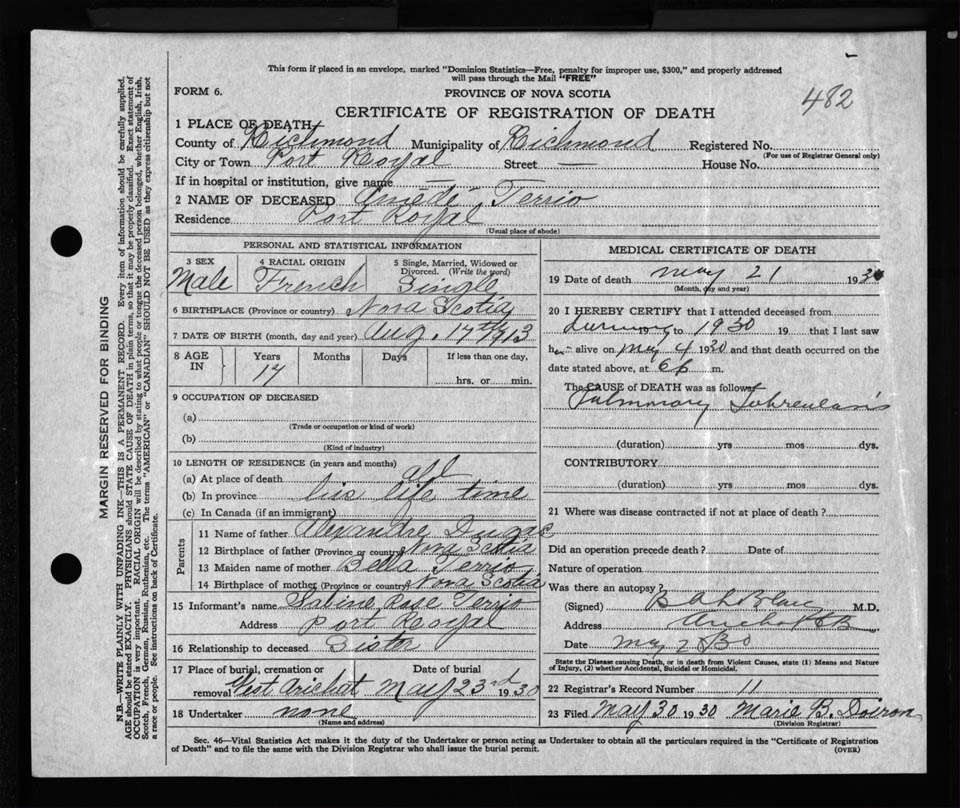 This form if placed in an envelope, marked "Dominion Statistics—Free, penalty for improper use, $300," and properly addressed
will pass through the Mail "FREE"
FORM 6.
PROVINCE OF NOVA SCOTIA
482
CERTIFICATE OF REGISTRATION OF DEATH
1 PLACE OF DEATH
County of Richmond Municipality of Richmond Registered No.
(For use of Registrar General only)
City or Town Port Royal Street — House No.
If in hospital or institution, give name —
2 NAME OF DECEASED Amédé Terrio
Residence Port Royal
(Usual place of abode)
PERSONAL AND STATISTICAL INFORMATION
3 SEX Male
4 RACIAL ORIGIN French
5 Single, Married, Widowed or Divorced. (Write the word) Single
6 BIRTHPLACE (Province or country) Nova Scotia
7 DATE OF BIRTH (month, day and year) Aug. 17th 1913
8 AGE IN Years 17 Months Days If less than one day, hrs. or min.
9 OCCUPATION OF DECEASED
(a)
(Trade or occupation or kind of work)
(b)
(Kind of industry)
10 LENGTH OF RESIDENCE (in years and months)
(a) At place of death all
(b) In province his life time
(c) In Canada (if an immigrant)
Parents
11 Name of father Alexandre Dugas
12 Birthplace of father (Province or country) Nova Scotia
13 Maiden name of mother Bella Terrio
14 Birthplace of mother (Province or country) Nova Scotia
15 Informant's name Sabine Rose Terrio
Address Port Royal
16 Relationship to deceased Sister
17 Place of burial, cremation or removal West Arichat Date of burial May 23rd 1930
18 Undertaker none
(Name and address)
MEDICAL CERTIFICATE OF DEATH
19 Date of death May 21 1930
(Month, day and year)
20 I HEREBY CERTIFY that I attended deceased from
during to 1930 19 that I last saw
h alive on May 4 1930 and that death occurred on the
date stated above, at 6 p m.
The CAUSE of DEATH was as follows:
Pulmonary
(duration) yrs mos dys.
CONTRIBUTORY
(duration) yrs mos dys.
21 Where was disease contracted if not at place of death?
Did an operation precede death? Date of
Nature of operation
Was there an autopsy?
(Signed) M.D.
Address
Date May
State the Disease causing Death, or in death from Violent Causes, state (1) Means and Nature
of Injury, (2) whether Accidental, Suicidal or Homicidal.
22 Registrar's Record Number 11
23 Filed May 30 1930 Marie B. Doiron
(Division Registrar)
Sec. 46—Vital Statistics Act makes it the duty of the Undertaker or person acting as Undertaker to obtain all the particulars required in the "Certificate of Registration
of Death" and to file the same with the Division Registrar who shall issue the burial permit. (OVER)
MARGIN RESERVED FOR BINDING
N.B.—WRITE PLAINLY WITH UNFADING INK—THIS IS A PERMANENT RECORD. Every item of information should be carefully supplied.
AGE should be stated EXACTLY. PHYSICIANS should STATE CAUSE OF DEATH in plain terms, so that it may be properly classified. Exact statement of
OCCUPATION is very important. RACIAL ORIGIN will be described by stating to what people or tongue the deceased person belonged, whether English, Irish,
Scotch, French, German, Russian, Ruthenian, etc. The terms "AMERICAN" or "CANADIAN" SHOULD NOT BE USED as they express citizenship but not
a race or people. See instructions on back of Certificate.